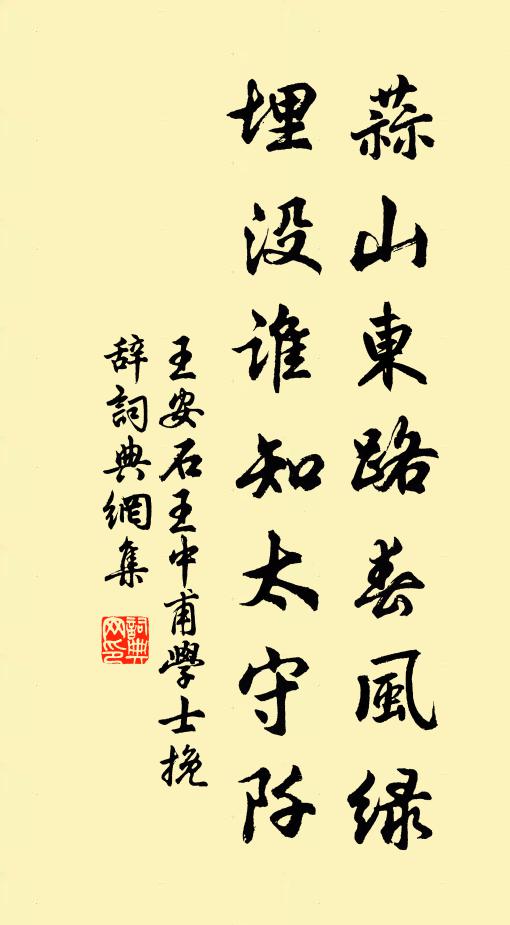 蒜山東路春風緑
埋没誰知太守阡
王安石王中甫學士挽
辞詞典網集
詞典网印